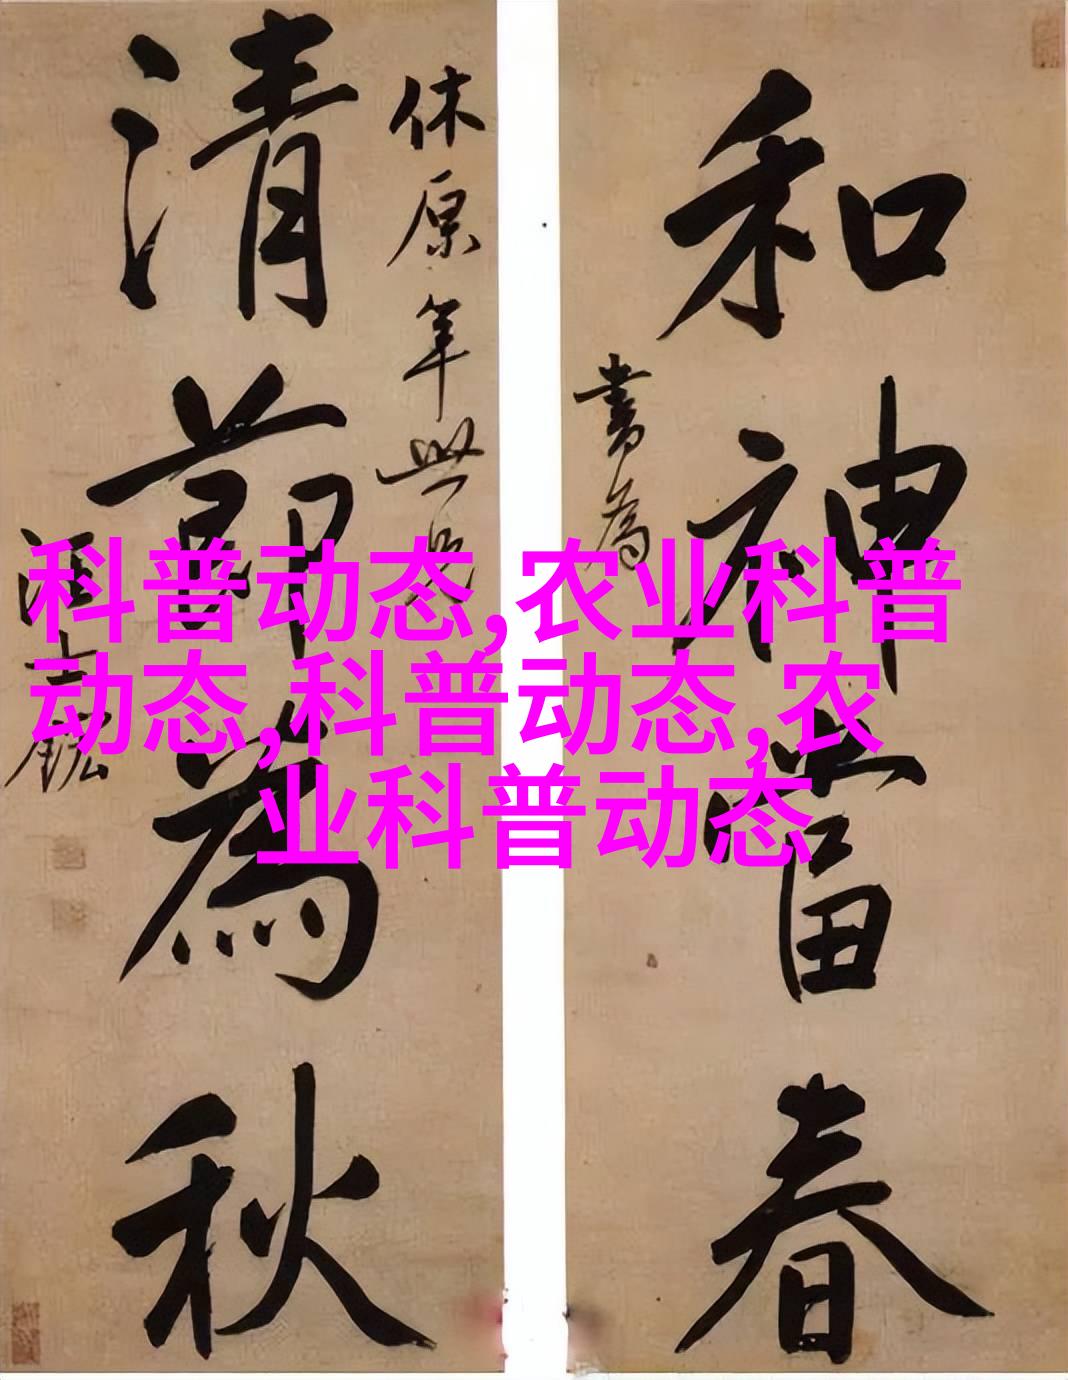 和神當春
書為
休原年世兄
清節為秋
汪士鋐
科普动态,农业科普
动态,科普动态,农
业科普动态